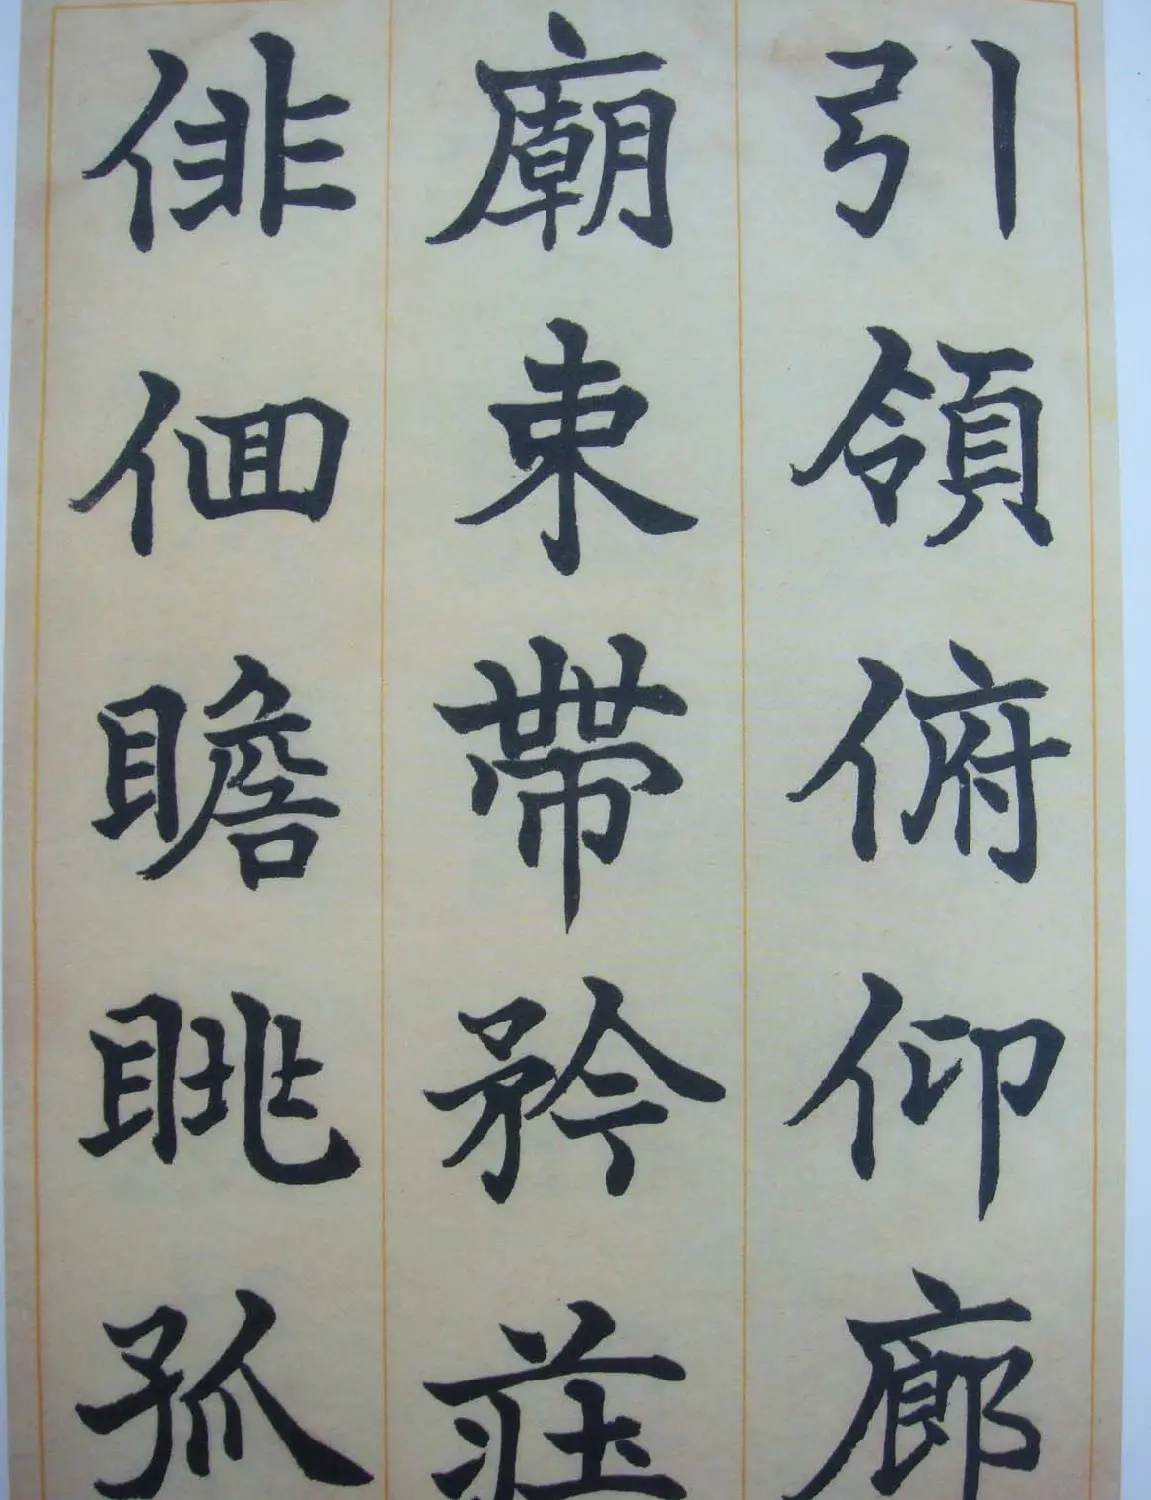 引領俯仰廊
廟束帶矜莊
俳佪瞻眺孤